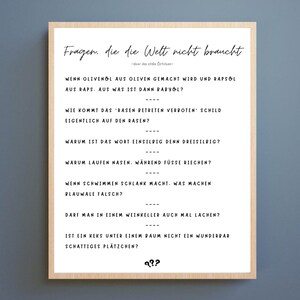 Fragen, die die Welt nicht braucht
WENN OLIVENÖL AUS OLIVEN GEMACHT WIRD UND RAPSÖL
AUS RAPS, AUS WAS IST DANN BABYÖL?
----
WIE KOMMT DAS "RASEN BETRETEN VERBOTEN" SCHILD
EIGENTLICH AUF DEN RASEN?
----
WARUM IST DAS WORT EINSILBIG DENN DREISILBIG?
----
WARUM LAUFEN NASEN, WÄHREND FÜSSE RIECHEN?
----
WENN SCHWIMMEN SCHLANK MACHT, WAS MACHEN
BLAUWALE FALSCH?
----
DARF MAN IN EINEM WEINKELLER AUCH MAL LACHEN?
----
IST EIN KEKS UNTER EINEM BAUM NICHT EIN WUNDERBAR
SCHATTIGES PLÄTZCHEN?
???